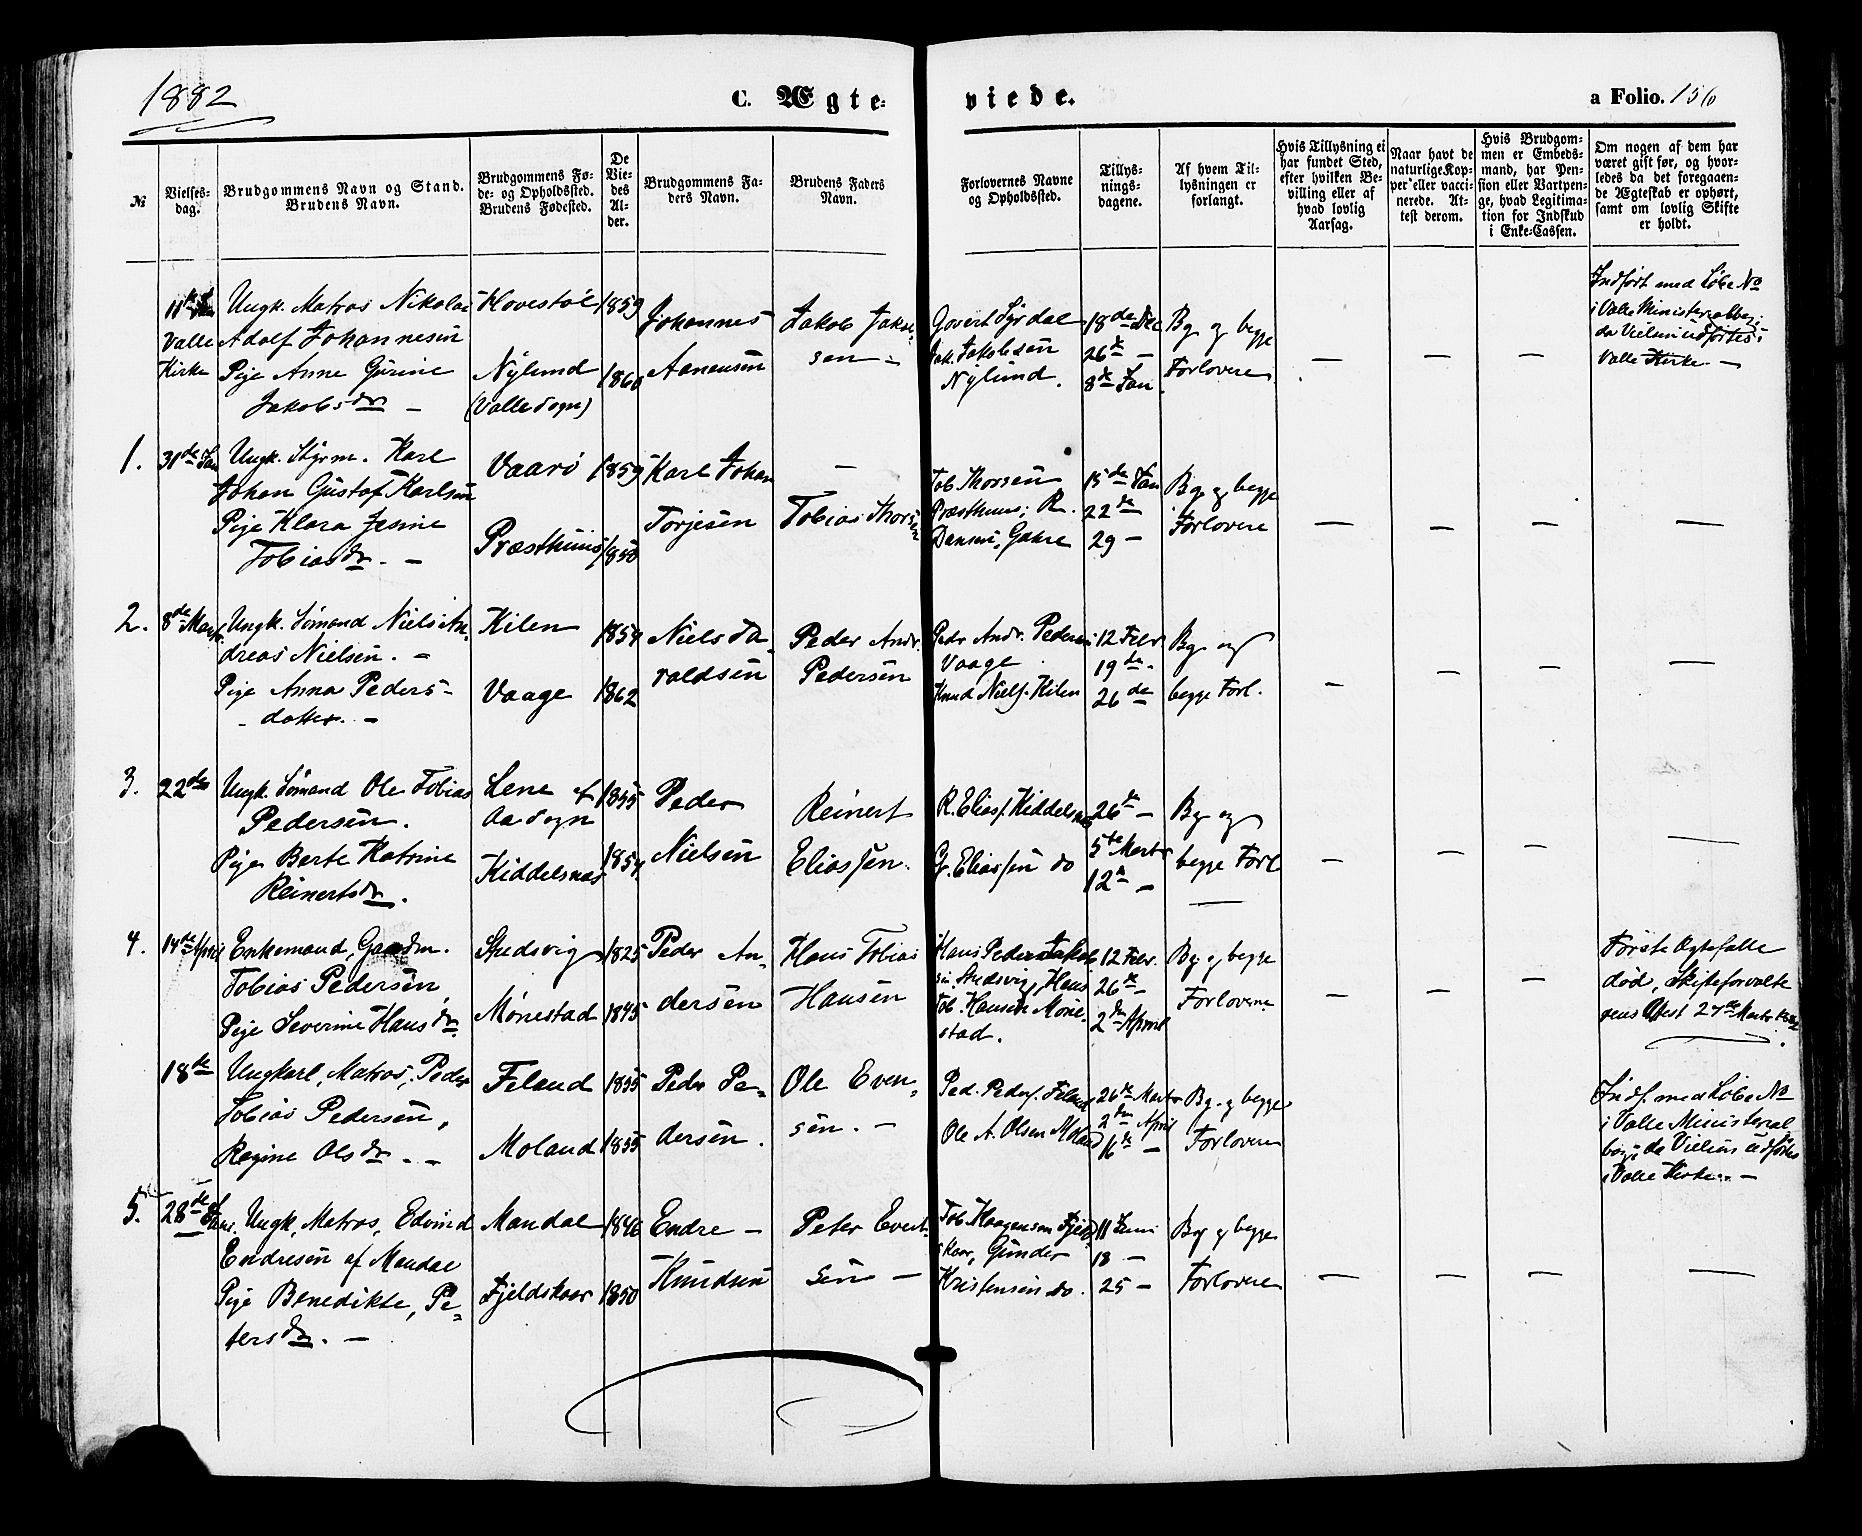 1882
C. Ægte-
viede.
a Folio. 156
№
Vielses-
dag.
Brudgommens Navn og Stand.
Brudens Navn.
Brudgommens Fø-
de- og Opholdssted.
Brudens Fødested.
De
Vie-
des
Al-
der.
Brudgommens Fa-
ders Navn.
Brudens Faders
Navn.
Forlovernes Navne
og Opholdssted.
Tillys-
nings-
dagene.
Af hvem Til-
lysningen er
forlangt.
Hvis Tillysning ei
har fundet Sted,
efter hvilken Be-
villing eller af
hvad lovlig
Aarsag.
Naar havt de
naturlige Kop-
per eller vacci-
nerede. At-
test derom.
Hvis Brudgom-
men er Embeds-
mand, har Pen-
sion eller Vartpen-
ge, hvad Legitima-
tion for Indskud
i Enke-Cassen.
Om nogen af dem har
været gift før, og hvor-
ledes da det foregaaen-
de Ægteskab er ophørt,
samt om lovlig Skifte
er holdt.
11te Jan
Valle
Kirke
Ungk. Matros Nikolai
Adolf Johannesen
Pige Anne Gurine
Jakobsdr. —
Hovestøl
Nylund
(Valle Sogn)
1859
1860
Johannes
Aanensen
Jakob Jakob-
sen —
Govert Syrdal
Jak. Jakobsen
Nylund.
18de Dec
26de —
8de Jan
Bg. og begge
Forlovere
—
—
—
Indført med Løbe No
i Valle Ministerialbog;
da Vielsen udførtes i
Valle Kirke —
1.
31de Jan
Ungk. Styrm. Karl
Johan Gustaf Karlsen
Pige Klara Jesine
Tobiasdr. —
Vaarø
Præsthuus
1859
1850
Karl Johan
Torjesen
—
Tobias Thorsen
Tob. Thorsen
Præsthuus; R.
Hansen, Gahre
15de Jan
22de
29 —
Bg. og begge
Forlovere
—
—
—
—
2.
8de Marts
Ungk. Sømand Niels An-
dreas Nielsen. —
Pige Anna Peders-
datter. —
Kilen
Vaage
1859
1862
Niels Ta-
raldsen
Peder Andr.
Pedersen
Pedr Andr. Pedersen
Vaage
Knud Niels. Kilen
12 Febr
19de —
26de
Bg. og
begge Forl.
—
—
—
—
3.
22de
Ungk. Sømand Ole Tobias
Pedersen.
Pige Berte Katrine
Reinertsdr.
Lene af
Aa Sogn
Kiddelsnæs
1855
1859
Peder
Nielsen
Reinert
Eliassen.
R. Eliass. Kiddelsnæs
G. Eliassen do
26de —
5te Marts
12te —
Bg. og
begge Forl
—
—
—
—
4.
14de April
Enkemand, Gaardm.
Tobias Pedersen
Pige Severine Hansdr.
Studsvig
Mønestad
1825
1845
Peder An-
dersen
Hans Tobias
Hansen
Hans Peder Jakob-
sen Studsvig, Hans
Tob. Hansen Møne-
stad.
12 Febr.
26de —
2den April
Bg. og begge
Forlovere
—
—
—
Første Ægtefælle
død, Skifteforvalte
rens Attest 27de Marts 1882
18de
Ungkarl, Matros, Peder
Tobias Pedersen,
Regine Olsdr. —
Feland
Moland
1855
1855
Peder Pe-
dersen.
Ole Even-
sen. —
Ped. Peders. Feland
Ole A. Olsen Moland
26de Marts
2den April
16de —
Bg. og begge
Forlovere
Indf. med Løbe No
i Valle Ministerial
bog; da Vielsen udførtes
i Valle Kirke. —
5.
28de Juni
Ungk, Matros, Edvind
Endresen af Mandal
Pige Benedikte, Pe-
tersdr. —
Mandal
Fjeldskaar
1846
1850
Endre —
Knudsen
Peter Evert-
sen —
Tob. Haagensen Fjeld-
skaar, Gunder
Kristensen do.
11 Juni
18 —
25 —
Bg. og begge
Forlovere
—
—
—
—